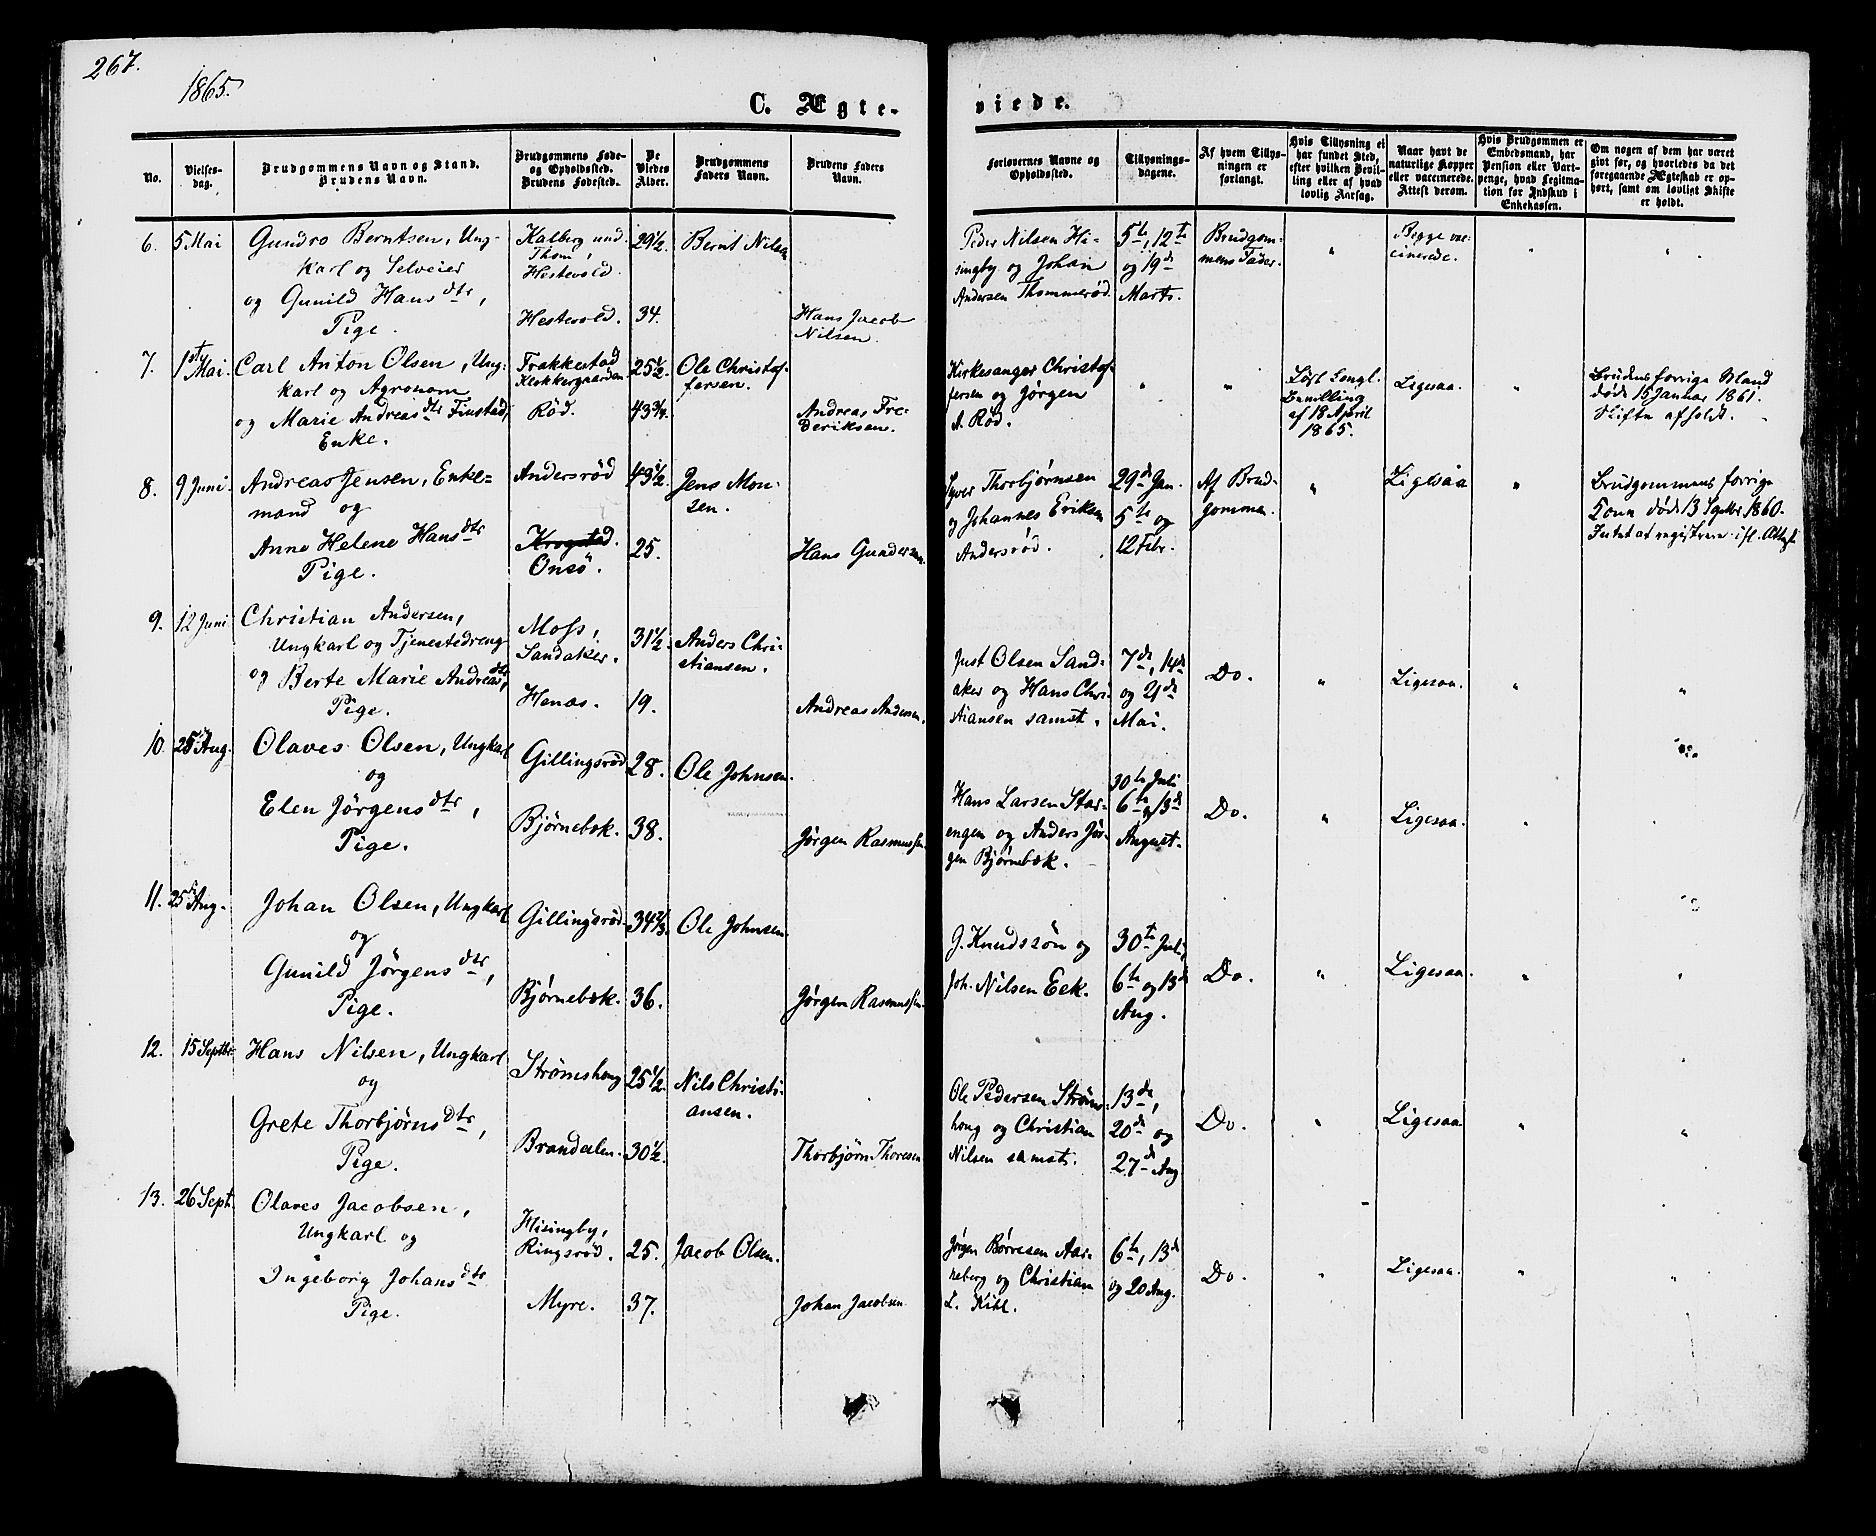 267.
1865.
C. Ægte-
viede.
No.
Vielses-
dag.
Brudgommens Navn og Stand.
Brudens Navn.
Brudgommens Føde-
og Opholdssted.
Brudens Fødested.
De
Viedes
Alder.
Brudgommens
Faders Navn.
Brudens Faders
Navn.
Forlovernes Navne og
Opholdssted.
Tillysnings-
dagene.
Af hvem Tillys-
ningen er
forlangt.
Hvis Tillysning ei
har fundet Sted,
efter hvilken Bevil-
ling eller af hvad
lovlig Aarsag.
Naar havt de
naturlige Kopper
eller vaccinerede.
Attest derom.
Hvis Brudgommen er
Embedsmand, har
Pension eller Vart-
penge, hvad Legitima-
tion for Indskud i
Enkekassen.
Om nogen af dem har været
gift før, og hvorledes da det
foregaaende Ægteskab er op-
hørt, samt om lovligt Skifte
er holdt.
6.
5 Mai
Gundro Berntsen, Ung-
karl og Selveier
og Gunild Hansdtr,
Pige.
Kalberg und.
Thom,
Hestevold.
Hestevold.
29½
34.
Bernt Nilsen
Hans Jacob
Nilsen.
Peder Nilsen Hi-
singby og Johan
Andersen Thommerød.
5te, 12te
og 19de
Marts.
Brudgom-
mens Fader.
"
Begge vac-
cinerede.
"
"
7.
1st Mai.
Carl Anton Olsen, Ung-
karl og Agronom
og Marie Andreasdtr Finstad,
Enke.
Trakkestad
Klokkergaarden.
Rød.
25½
43¾.
Ole Christof-
fersen.
Andreas Fre-
deriksen.
Kirkesanger Christof-
fersen og Jørgen
A. Rød.
"
"
Løst Kongl.
Bevilling
af 18 April
1865.
Ligesaa.
"
Brudens forrige Mand
døde 15 Januar 1861.
Skifte afholdt.
8.
9 Juni.
Andreas Jensen, Enke-
mand og
Anne Helene Hansdtr
Pige.
Andersrød
Krogsted.
Onsö.
43½
25.
Jens Mon-
sen.
Hans Gundersen
Thorbjørnsen
og Johannes Eriksen
Andersrød.
29de Jan.
5te og
12 Febr.
Af Brud-
gommen.
"
Ligesaa
"
Brudgommens forrige
Kone døde 13 Septbr 1860.
Intet at registrere ifl. Attest
9.
12 Juni
Christian Andersen,
Ungkarl og Tjenestedreng
og Berte Marie Andreasdtr,
Pige.
Moss,
Sandaker.
Henæs.
31½
19.
Anders Chri-
stiansen.
Andreas Andersen.
Just Olsen Sand-
aker og Hans Chri-
stiansen samst.
7de, 14de
og 21de
Mai.
Do.
"
Ligesaa.
"
"
10.
25 Aug.
Olaves Olsen, Ungkarl
og
Elen Jørgensdtr,
Pige.
Gillingsrød
Bjørnebæk.
28.
38.
Ole Johnsen.
Jørgen Rasmussen.
Hans Larsen Stor-
engen og Anders Jør-
gen Bjørnebæk.
30te Juli
6te og 13de
August.
Do.
"
Ligesaa.
"
"
11.
25 Aug.
Johan Olsen, Ungkarl
og
Gunild Jørgensdtr,
Pige.
Gillingsrød
Bjørnebæk.
34⅔.
36.
Ole Johnsen
Jørgen Rasmussen.
G. Knudssøn og
Joh. Nilsen Eek.
30te Juli,
6te og 13de
Aug.
Do.
"
Ligesaa.
"
"
12.
15 Septbr
Hans Nilsen, Ungkarl
og
Grete Thorbjørnsdtr,
Pige.
Strømshoug
Brandalen.
25½
30½.
Nils Christi-
ansen.
Thorbjørn Thoresen
Ole Pedersen Strøms-
houg og Christian
Nilsen samst.
13de,
20de og
27de Aug
Do.
"
Ligesaa.
"
"
13.
26 Sept.
Olaves Jacobsen,
Ungkarl og
Ingeborg Johansdtr
Pige.
Hisingby,
Ringsrød.
Myre.
25.
37.
Jacob Olsen.
Johan Jacobsen
Jørgen Børresen Aar-
neberg og Christian
L. Kihl.
6te, 13de
og 20 Aug.
Do.
"
Ligesaa.
"
"